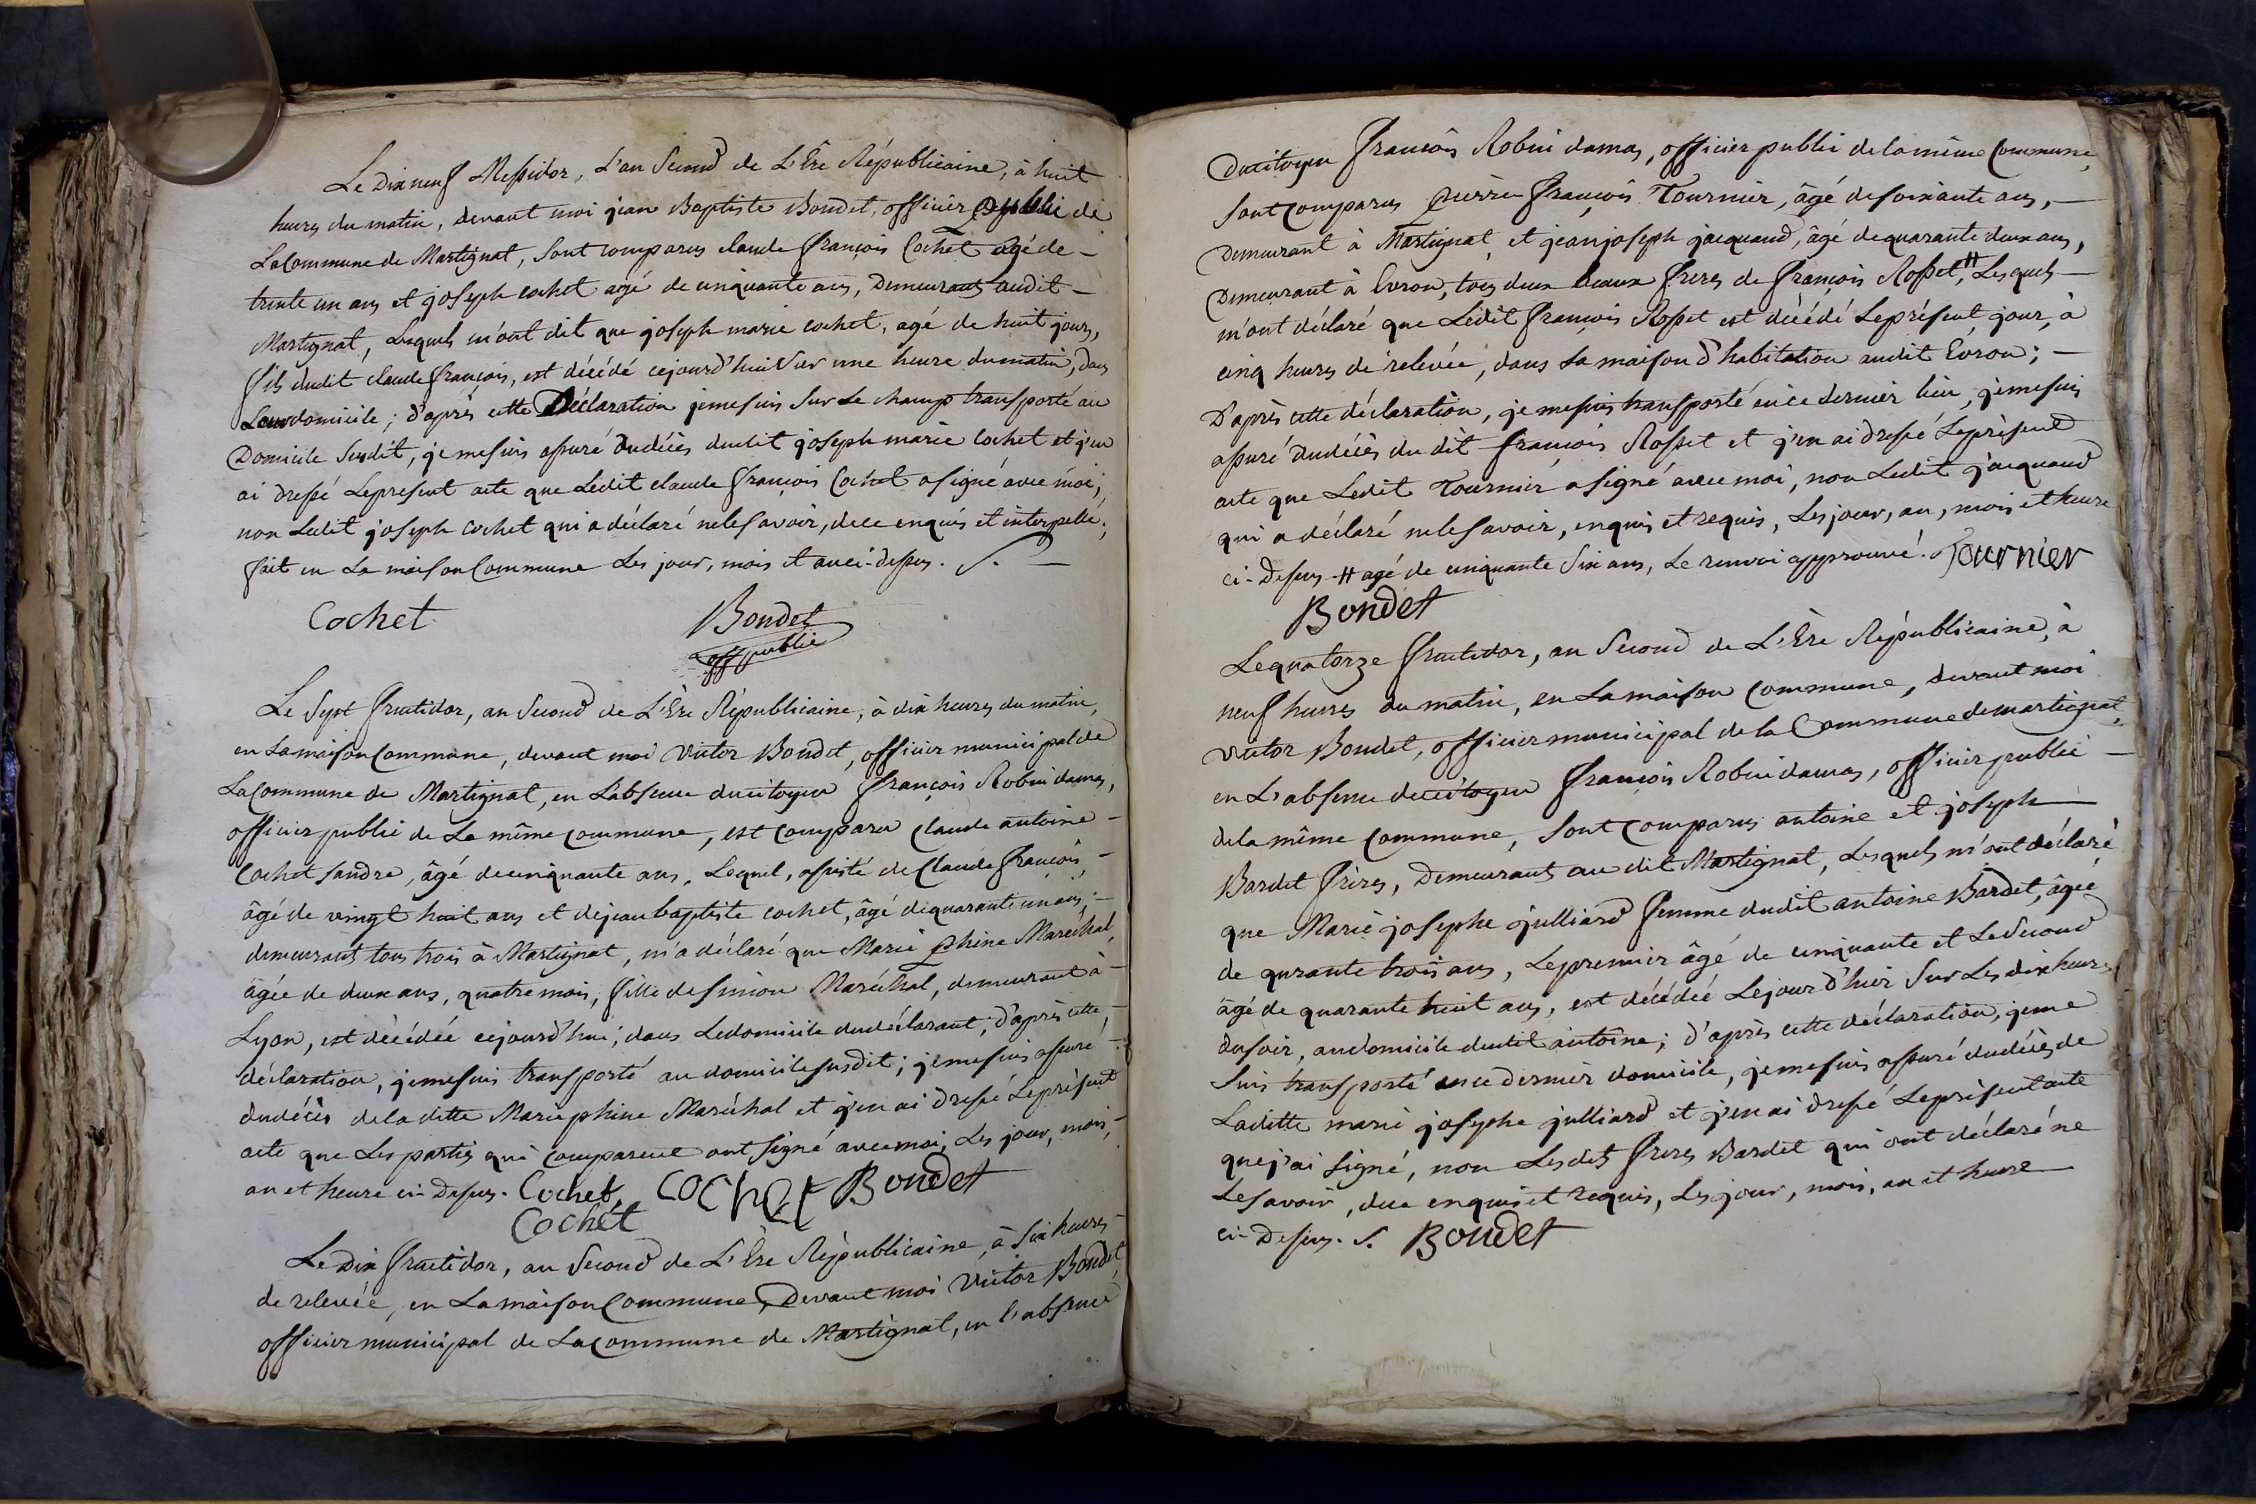 Le Dix neuf Messidor, L'an Second de L'Ere Républicaine, à huit
heures du matin, devant moi jean Baptiste Bondet, officier public de
La Commune de Martignat, sont comparus claude françois Cochet agé de
trente un ans et joseph cochet agé de cinquante ans, Demeurants audit
Martignat, Lesquels m'ont dit que joseph marie cochet, agé de huit jours,
fils dudit claude françois, est décédé cejourd'hui sur une heure du matin, dans
Leur domicile ; d'après cette Déclaration je me suis sur Le champ transporté au
Domicile susdit, je me suis assuré du décès dudit joseph marie Cochet et j'en
ai dressé Le present acte que Ledit claude françois Cochet a signé avec moi,
non Ledit joseph cochet qui a déclaré ne le savoir, de ce enquis et interpellé ;
fait en La maison Commune Les jour, mois et an ci-dessus. S.
Cochet Bondet
off public
Le sept fructidor, an second de L'Ère Républicaine, à dix heures du matin,
en La maison Commune, devant moi Victor Bondet, officier municipal de
La Commune de Martignat, en L'absence du citoyen françois Robin damas,
officier public de La même commune, est comparu claude antoine
Cochet sandre, âgé de cinquante ans, Lequel, assisté de Claude françois,
âgé de vingt huit ans et de jean baptiste cochet, âgé de quarante un ans,
demeurants tous trois à Martignat, m'a déclaré que Marie phine Maréchal,
âgée de deux ans, quatre mois, fille de simon Maréchal, demeurant à
Lyon, est décédée cejourd'hui, dans Le domicile du déclarant, d'après cette
déclaration, je me suis transporté au domicile susdit ; je me suis assuré
du décès de la ditte Marie phine Maréchal et j'en ai dressé Le présent
acte que Les parties qui comparence ont signé avec moi, Les jour, mois,
an et heure ci-Dessus. Cochet, COCHET Bondet
Cochet
Le Dix fructidor, an Second de L'Ere Républicaine, à six heures
de relevée, en La maison Commune, Devant moi Victor Bondet,
officier municipal de La Commune de Martignat, en l'absence
Du citoyen françois Robin damas, officier public de la même Commune,
sont comparus pierre françois Tournier, âgé de soixante ans,
Demeurant à Martignat, et jean joseph jacquand, âgé de quarante deux ans,
Demeurant à Evron, tous deux beaux freres de françois Rosset, # Lesquels
m'ont déclaré que Ledit françois Rosset est décédé Le présent jour, à
cinq heures de relevée, dans sa maison d'habitation audit Evron ;
D'après cette déclaration, je me suis transporté en ce dernier lieu, je me suis
assuré du décès du dit françois Rosset et j'en ai dressé Le présent
acte que Ledit Tournier a signé avec moi, non Ledit jacquand
qui a déclaré ne le savoir, enquis et requis, Les jour, an, mois et heure
ci-Dessus # agé de cinquante six ans, Le renvoi approuvé. Tournier
Bondet
Le quatorze fructidor, an Second de L'Ère Républicaine, à
neuf heures du matin, en La maison Commune, devant moi
Victor Bondet, officier municipal de la Commune de martignat,
en L'absence du citoyen françois Robin damas, officier public
de la même commune, sont comparus antoine et joseph
Bardet frères, Demeurants au dit Martignat, Lesquels m'ont déclaré
que Marie josephe julliard femme dudit antoine Bardet, âgée
de qurante trois ans, Le premier âgé de cinquante et Le second
âgé de quarante huit ans, est décédée Le jour d'hier sur Les dix heures
du soir, au domicile dudit antoine ; d'après cette déclaration, je me
suis transporté en ce dernier domicile, je me suis assuré du décès de
Laditte marie josephe julliard et j'en ai dressé Le présent acte
que j'ai signé, non Lesdits freres Bardet qui ont déclaré ne
Le savoir, de ce enquis et requis, Les jour, mois, an et heure
ci-Dessus. S. Bondet